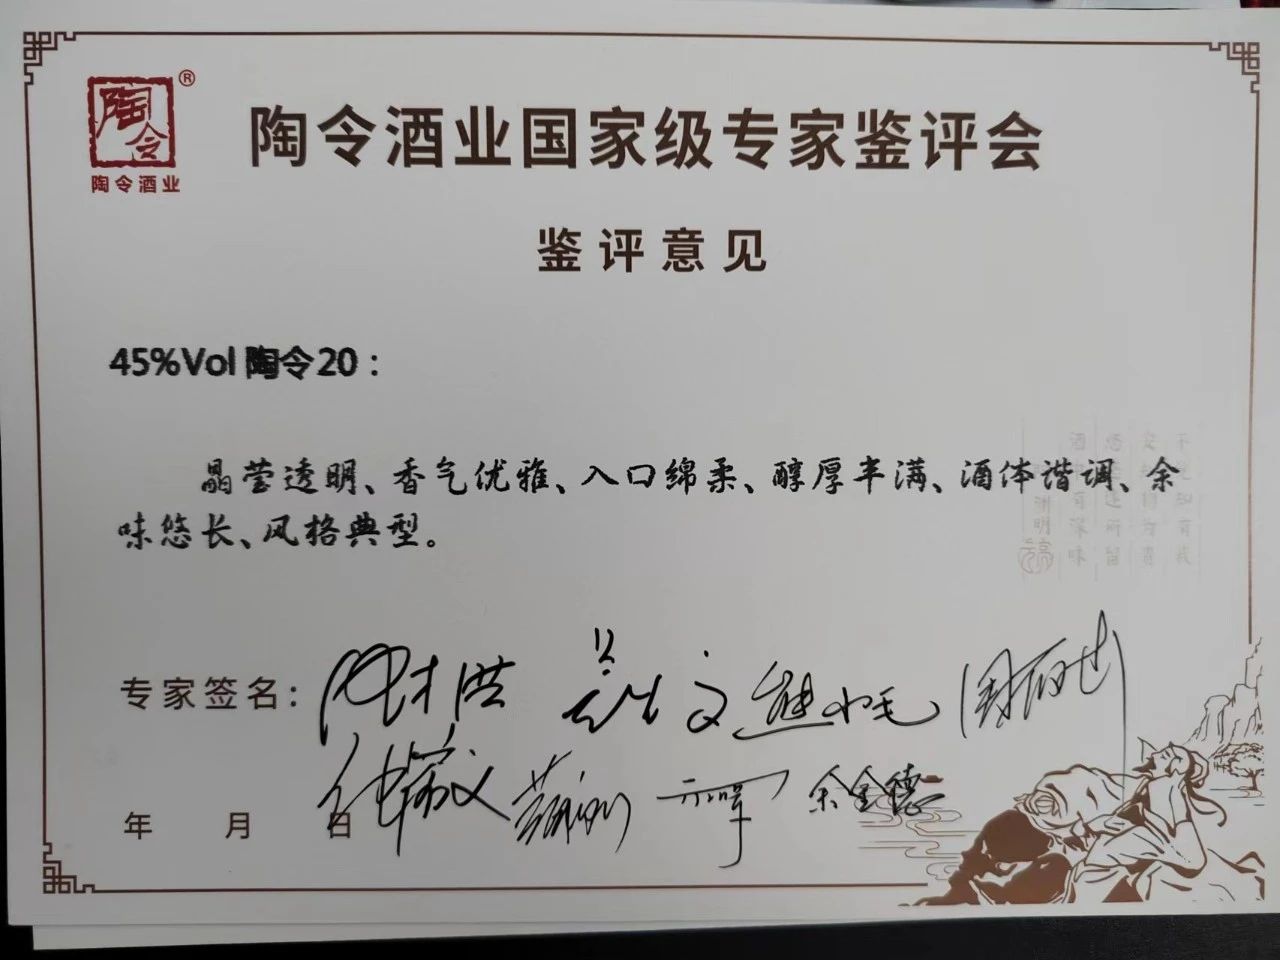 陶令
®
陶令酒业
陶令酒业国家级专家鉴评会
鉴评意见
45%Vol 陶令20：
晶莹透明、香气优雅、入口绵柔、醇厚丰满、酒体谐调、余
味悠长、风格典型。
专家签名：
余金德
年 月 日